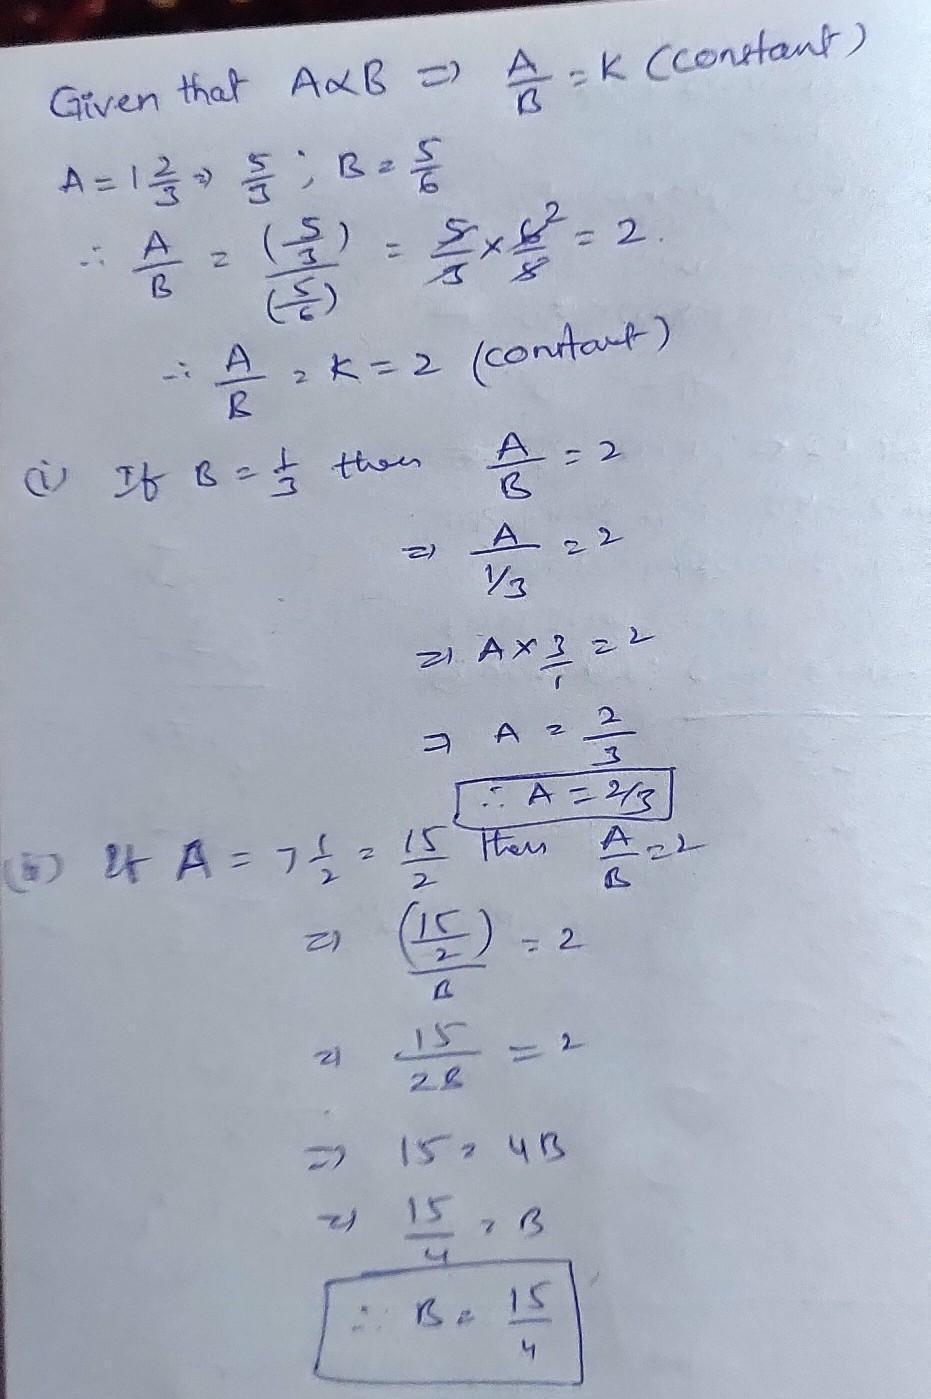 Given that A∝B ⇒ A/B = K (constant)
A = 1 2/3 ⇒ 5/3 ; B = 5/6
∴ A/B = (5/3)/(5/6) = 5/3 × 6/5 2 = 2.
∴ A/B = K = 2 (constant)
(i) If B = 1/3 then A/B = 2
⇒ A/(1/3) = 2
⇒ A × 3/1 = 2
⇒ A = 2/3
∴ A = 2/3
(ii) If A = 7 1/2 = 15/2 then A/B = 2
⇒ (15/2)/B = 2
⇒ 15/2B = 2
⇒ 15 = 4B
⇒ 15/4 = B
∴ B = 15/4